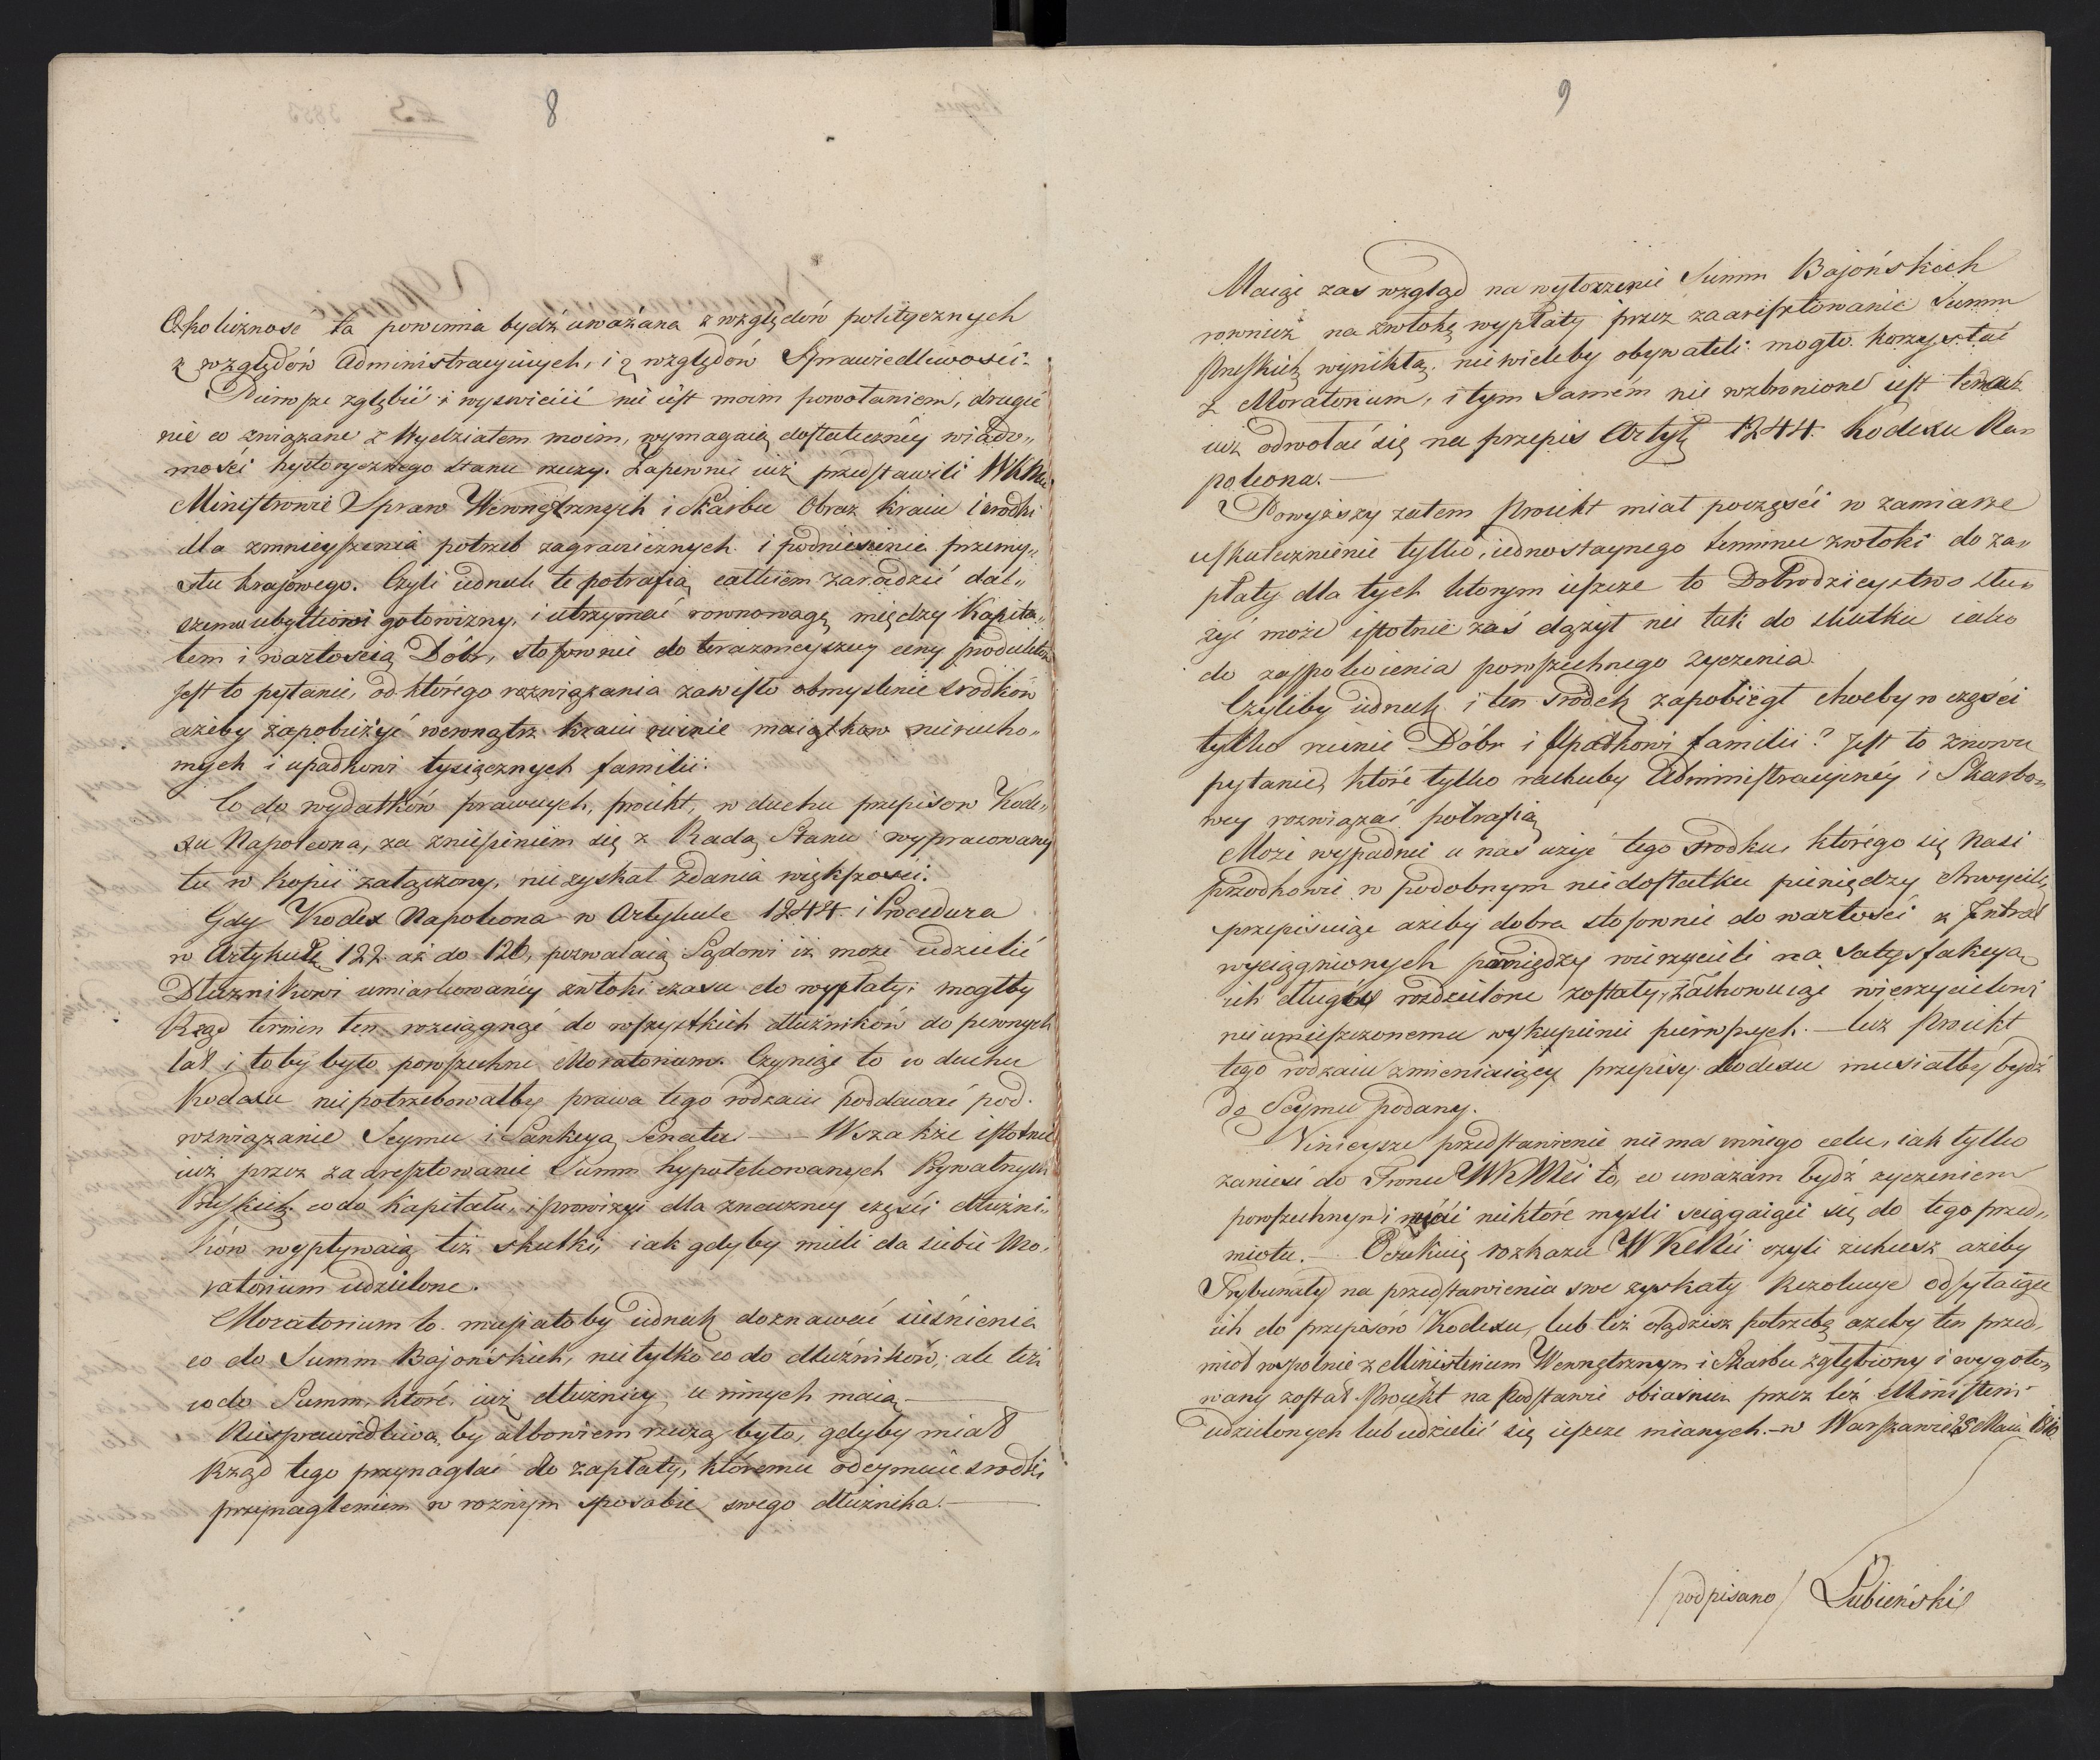 8
Okoliczność ta powinna bydź uważana z względów politycznych
z względów Administracyinych, i z względów Sprawiedliwości.
Pierwsze zgłębić i wyswiecić nie iest moim powołaniem, drugie
nie co związane z Wydziałem moim, wymagaią dostateczney wiado„
mości hystorycznego stanu rzeczy. Zapewnie iuż przedstawili WKMci
Ministrowie Spraw Wewnętrznych i Skarbu Obraz kraiu i srodki
dla zmnieyszenia potrzeb zagranicznych i podniesienie przemy„
słu krajowego. Czyli iednak te potrafią całkiem zaradzić dal„
szemu ubytkowi gotowizny, i utrzymać rownowagę między Kapita„
łem i wartością Dóbr, stosownie do teraznieyszey ceny produktów
Jest to pytanie, od którego rozwiązania zawisło obmyslenie srodków
ażeby zapobieżyć wewnątrz kraiu ruinie maiątkow nierucho„
mych i upadkowi tysiącznych familii.
Co do wydatków prawnych, proiekt, w duchu przepisow Kode„
xu Napoleona, za zniesieniem się z Radą Stanu wypracowany
tu w kopii załączony, nie zyskał zdania większości.
Gdy Kodex Napoleona w Artykule 1244. i Procedura
w Artykule 122 aż do 126, pozwalaią Sądowi iż może udzielić
Dłużnikowi umiarkowaney zwłoki czasu do wypłaty, mogłby
Rząd termin ten rozciągnąć do wszystkich dłużników do pewnych
lat i to by było powszechne Moratorium. Czyniąc to w duchu
Kodexu nie potrzebowałby prawa tego rodzaiu poddawać pod
rozwiązanie Seymu i Sankcyą Senatu — Wszakże istotnie
iuż przez zaaresztowanie Summ hypotekowanych Prywatnych
Pruskich co do Kapitału, i prowizyi dla znaczney części dłużni„
ków wypływaią też skutki, iak gdyby mieli dla siebie Mo„
ratorium udzielone.
Moratorium to musiałoby iednak doznawać ścieśnienia
co do Summ Bajońskich, nietylko co do dłużników, ale też
co do Summ, które iuż dłużnicy u innych maią —
Niesprawiedliwą by albowiem rzeczą było, gdyby miał
Rząd tego przynaglać do zapłaty, któremu odeymuie srodki
przynagleniem w rożnym sposobie swego dłużnika. —
9
Maiąc zas wzgląd na wytoczenie Summ Bajońskich
rownież na zwłokę wypłaty przez zaaresztowanie Summ
Pruskich wynikłą, niewieleby obywateli mogło korzystać
z Moratorium, i tym samém nie wzbronione iest teraz
iuż odwołać się na przepis Artykułu 1244. Kodexu Na„
poleona. —
Powyższy zatem Proiekt miał poczęści w zamiarze
uskutecznienie tylko, iednostaynego terminu zwłoki do za„
płaty dla tych ktorym ieszcze to Dobrodzieystwo słu„
żyć może istotnie zaś dążył nie tak do skutku iako
do zaspokoienia powszechnego życzenia.
Czyliby iednak i ten srodek zapobiegł choćby w części
tylko ruinie Dóbr i Upadkowi familii? Jest to znowu
pytanie, które tylko rachuby Administracyiney i Skarbo„
wey rozwiązać potrafią
Może wypadnie u nas użyć tego srodku, którego się nasi
przodkowie w podobnym niedostatku pieniędzy chwycili,
przepisuiąc ażeby dobra stosownie do wartości z Intrat
wyciągnionych pomiędzy wierzycieli na satysfakcyą
ich długów rozdzielone zostały, zachowuiąc wierzycielowi
nieumieszczonemu wykupienie pierwszych. — lecz Proiekt
tego rodzaiu zmieniaiący przepisy Kodexu musiałby bydź
do Seymu podany.
Ninieysze przedstawienie niema innego celu, iak tylko
zanieść do Tronu WKMci to, co uważam bydź życzeniem
powszechnym i niektóre mysli sciągaiące się do tego przed„
miotu. — Oczekuię rozkazu WKMci czyli zechcesz ażeby
Trybunały na przedstawienia swe zyskały Rezolucye odsyłaiące
ich do przepisów Kodexu, lub też osądzisz potrzebę azeby ten przed„
miot wspolnie z Ministerium Wewnętrznym i Skarbu zgłębiony i wygoto„
wany został Proiekt na Podstawie obiasnień przez też Ministeria
udzielonych lub udzielić się ieszcze mianych. — w Warszawie 28 Maia 1810.
/podpisano/ Łubieński